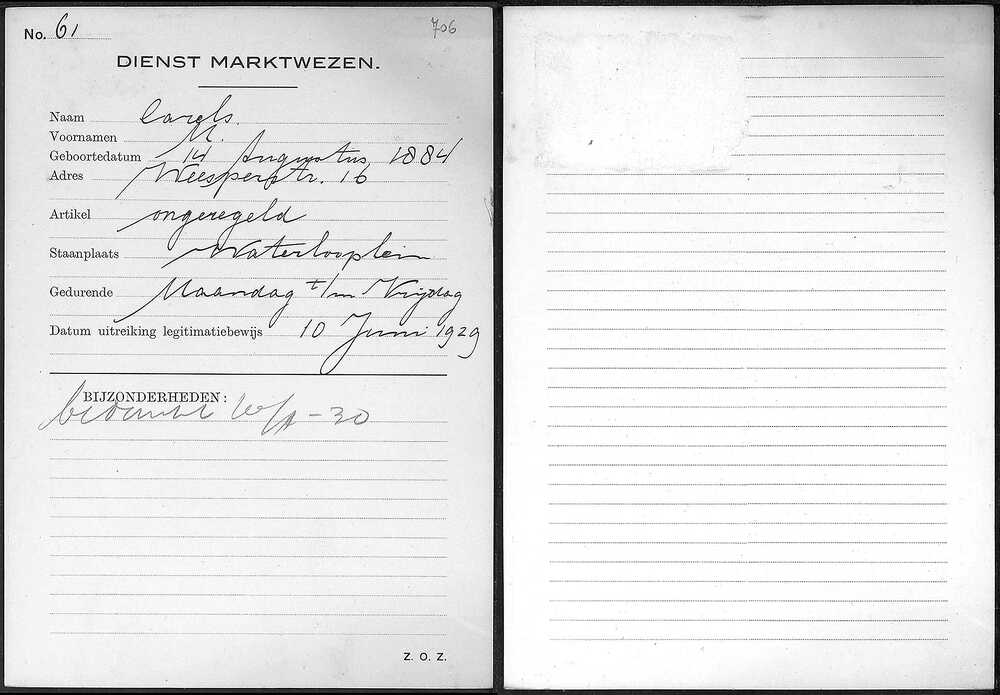 No. 61 706
DIENST MARKTWEZEN.
Naam Carels.
Voornamen M.
Geboortedatum 14 Augustus 1884
Adres Weesperstr. 16
Artikel ongeregeld
Staanplaats Waterlooplein
Gedurende Maandag t/m Vrijdag
Datum uitreiking legitimatiebewijs 10 Juni 1929
BIJZONDERHEDEN:
-30
Z. O. Z.